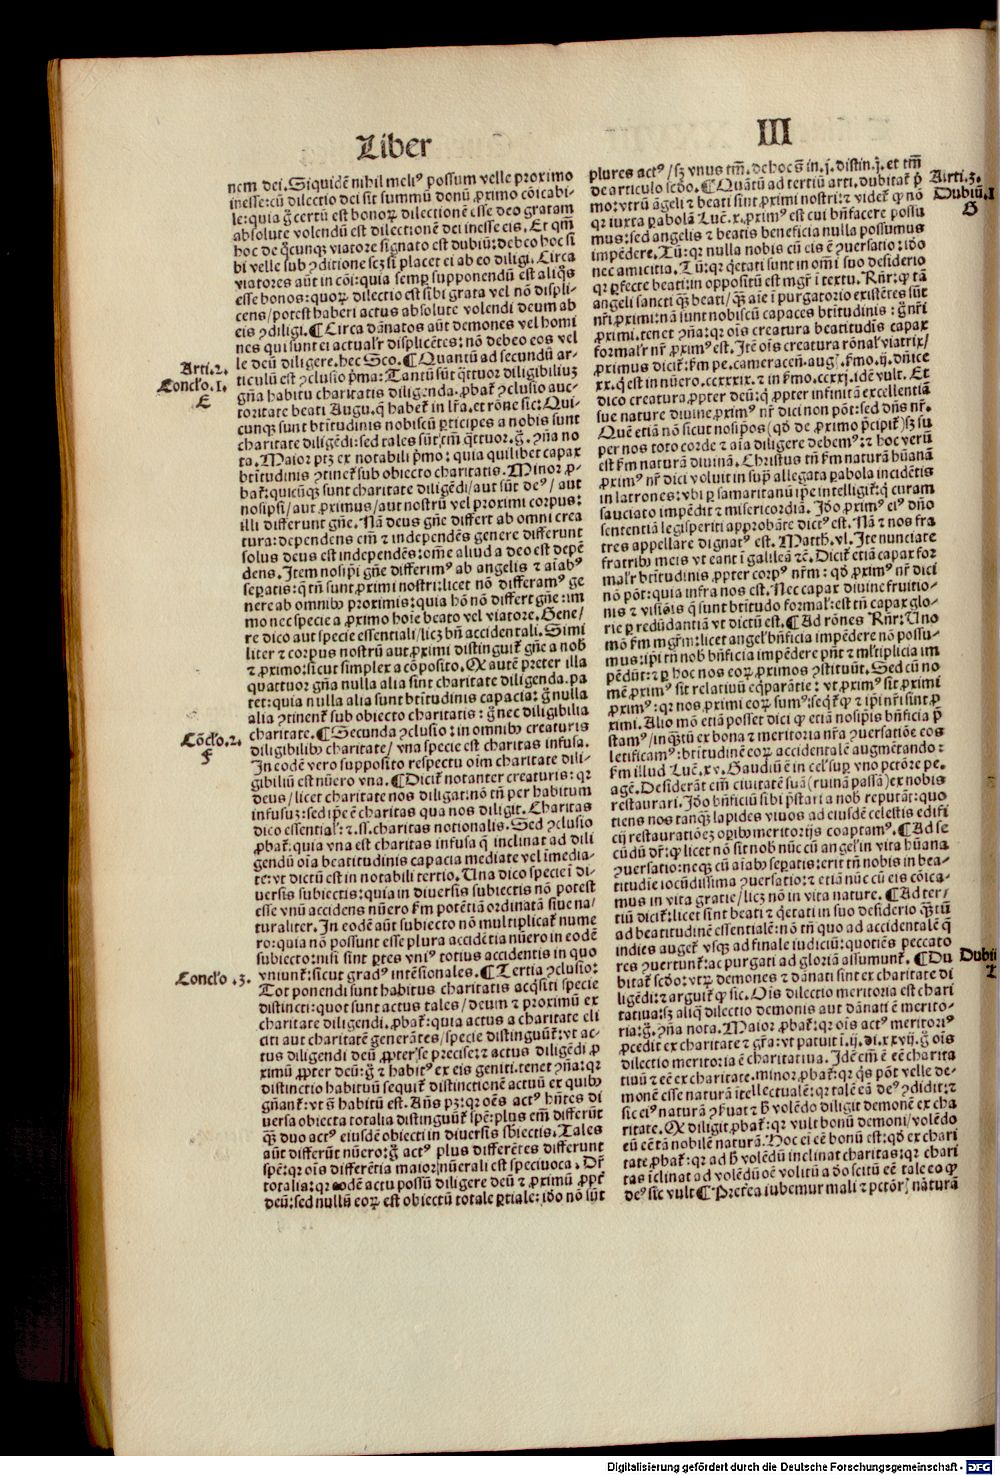 Liber
III
nem dei. Siquidē nihil meliꝰ possum velle proximo
inesse: cū dilectio dei sit summū donū ꝓximo cōicabi-
le: quia g̃ certū est bonoꝝ dilectionē esse deo gratam
absolute volendū est dilectionē dei inesse eis. Et qm̄
hoc de q̃cunqꝫ viatore signato est dubiū: debeo hoc si
bi velle sub ꝯditione scꝫ si placet ei ab eo diligi. Circa
viatores aūt in cōi: quia semꝑ supponendū est aliq̃s
esse bonos: quoꝝ dilectio est sibi grata vel nō displi-
cens/potest haberi actus absolute volendi deum ab
eis ꝯdiligi. ¶ Circa dānatos aūt demones vel homi
nes qui sunt ei actualr̄ displicētes: nō debeo eos vel
le deū diligere. hec Sco. ¶ Quantū ad secundū ar-
ticulū est ꝯclusio p̄ma: Tantū sūt q̄ttuor diligibiliuꝫ
gn̄a habitu charitatis diligenda. ꝓbat̄ ꝯclusio auc-
toritate beati Augu. q̄ habet̄ in lr̄a. et rōne sic: Qui-
cunqꝫ sunt btītudinis nobiscū ꝑticipes a nobis sunt
charitate diligēdi: sed tales sūt tm̄ q̄ttuor. g̃. ꝯn̄a no
ta. Maior ptꝫ ex notabili p̄mo: quia quilibet capax
btītudinis ꝯtinet̄ sub obiecto charitatis. Minor ꝓ-
bat̄: quicūqꝫ sunt charitate diligēdi/aut sūt deꝰ/ aut
nosipsi/ aut ꝓximus/aut nostrū vel proximi corpus:
illi differunt gn̄e. Nā deus gn̄e differt ab omni crea
tura: dependens em̄ ⁊ independēs genere differunt
solus deus est independēs: om̄e aliud a deo est depē
dens. Item nosip̄i gn̄e differimꝰ ab angelis ⁊ aīabꝰ
seꝑatis: q̄ tn̄ sunt ꝓximi nostri: licet nō differamꝰ ge
nere ab omnibꝰ proximis: quia hō nō differt gn̄e: im
mo nec specie a ꝓximo hoīe beato vel viatore. Gene/
re dico aut specie essentiali/licꝫ bn̄ accidentali. Simi
liter ⁊ corpus nostrū aut ꝓximi distinguit̄ gn̄e a nob̄
⁊ ꝓximo: sicut simplex a cōposito. Qꝫ autē preter illa
quattuor gn̄a nulla alia sint charitate diligenda. pa
tet: quia nulla alia sunt btītudinis capacia: g̃ nulla
alia ꝯtinent̄ sub obiecto charitatis: g̃ nec diligibilia
charitate. ¶ Secunda ꝯclusio: in omnibꝰ creaturis
diligibilibꝰ charitate/ vna specie est charitas infusa.
In eodē vero supposito respectu oīm charitate dili-
gibiliū est nūero vna. ¶ Dicit̄ notanter creaturis: qꝛ
deus/ licet charitate nos diligat: nō tn̄ per habitum
infusuꝫ: sed ip̄e ē charitas qua nos diligit. Charitas
dico essential̄: ⁊.ſſ. charitas notionalis. Sed ꝯclusio
ꝓbat̄: quia vna est charitas infusa q̄ inclinat ad dili
gendū oīa beatitudinis capacia mediate vel īmedia-
te: vt dictū est in notabili tertio. Una dico specie ī di-
uersis subiectis: quia in diuersis subiectis nō potest
esse vnū accidens nūero ẜm potētiā ordinatā siue na/
turaliter. In eodē aūt subiecto nō multiplicat̄ nume
ro: quia nō possunt esse plura accidētia nūero in eodē
subiecto: nisi sint ꝑtes vniꝰ totius accidentis in quo
vniunt̄: sicut gradꝰ intēsionales. ¶ Tertia ꝯclusio:
Tot ponendi sunt habitus charitatis acq̄siti specie
distincti: quot sunt actus tales/ deum ⁊ proximū ex
charitate diligendi. ꝓbat̄: quia actus a charitate eli
citi aut charitatē generātes/ specie distinguūt̄: vt ac-
tus diligendi deū ꝓpter se precise: ⁊ actus diligēdi ꝓ
ximū ꝓpter deū: g̃ ⁊ habitꝰ ex eis geniti. tenet ꝯn̄a: qꝛ
distinctio habituū sequit̄ distinctionē actuū ex quibꝰ
gn̄ant̄: vt s̄ habitū est. An̄s pꝫ: qꝛ oēs actꝰ hn̄tes di
uersa obiecta totalia distinguūt̄ spē: plus em̄ differūt
q̄ꝫ duo actꝰ eiusdē obiecti in diuersis sbiectis. Tales
aūt differūt nūero: g̃ actꝰ plus differētes differunt
spē: qꝛ oīs differētia maior nūerali est speciuoca. Dr̄
totalia: qꝛ eodē actu possū diligere deū ⁊ ꝓximū ꝓpt̄
deū: sed nullū eoꝝ est obiectū totale ꝑtiale: iōo nō sūt
Arti. 2.
Conclo. 1.
E
Cōclo. 2.
F
Conclo. 3.
plures actꝰ/ sꝫ vnus tm̄. de hoc s̄ in. j. distin. j. et tm̄
de articulo scdo. ¶ Quātū ad tertiū arti. dubitat̄ p̄
mo: vtrū āgeli ⁊ beati sint ꝓximi nostri: ⁊ videt̄ ꝙ nō
qꝛ iuxta ꝑabolā Luē. x. ꝓximꝰ est cui bn̄facere possu
mus: sed angelis ⁊ beatis beneficia nulla possumus
impēdere. Tū: qꝛ nulla nobis cū eis ē ꝯuersatio: iōo
nec amicitia. Tū: qꝛ q̄etati sunt in om̄i suo desiderio
qꝛ ꝑfecte beati: in oppositū est mgr̄ ī textu. Rn̄r: ꝙ tā
angeli sancti q̄ꝫ beati/ q̄ꝫ aīe ī purgatorio existētes sūt
nr̄i ꝓximi: nā sunt nobiscū capaces btītudinis: g̃ nr̄i
ꝓximi. tenet ꝯn̄a: qꝛ oīs creatura beatitudīs capax
formalr̄ nr̄ ꝓximꝰ est. Itē oīs creatura rōnal̄ viatrix/
ꝓximus dicit̄: ẜm pe. cameraceñ. aug. ẜmo. ij. dn̄ice
xx. q̄ est in nūero. ccxxxix. ⁊ in ẜmo. ccxxj. idē vult. Et
dico creatura ꝓpter deū: q̄ ꝓpter infinitā excellentiā
sue nature diuine ꝓximꝰ nr̄ dici non pōt: sed dn̄s nr̄.
Quē etiā nō sicut nosip̄os (qd̄ de ꝓximo p̄cipit̄) sꝫ su
per nos toto corde ⁊ aīa diligere debemꝰ: ⁊ hoc verū
est ẜm naturā diuinā. Christus tn̄ ẜm naturā hūanā
ꝓximꝰ nr̄ dici voluit in sup̄ allegata ꝑabola incidētis
in latrones: vbi ꝑ samaritanū ip̄e intelligit̄: q̄ curam
sauciato impēdit ⁊ misericordiā. Iōo ꝓximꝰ eiꝰ dn̄o
sententiā legisperiti approbāte dictꝰ est. Nā ⁊ nos fra
tres appellare dignatꝰ est. Matth. vl. Ite nunciate
fratribꝰ meis vt eant ī galileā ⁊c̄. Dicit̄ etiā capax for
malr̄ btītudinis ꝓpter corpꝰ nr̄m: qd̄ ꝓximꝰ nr̄ dici
nō pōt: quia infra nos est. Nec capax diuine fruitio-
nis ⁊ visiōis q̄ sunt btītudo formal̄: est tn̄ capax glo-
rie ꝑ redūdantiā vt dictū est. ¶ Ad rōnes Rn̄r: Uno
mō ẜm mgr̄m: licet angel̄ bn̄ficia impēdere nō possu-
mus: ip̄i tn̄ nob̄ bn̄ficia impēdere pn̄t ⁊ ml̄tiplicia im
pēdūt: ⁊ ꝑ hoc nos eoꝝ ꝓximos ꝯstituūt. Sed cū no
mē ꝓximꝰ sit relatiuū eq̄parātie: vt ꝓximꝰ sit ꝓximi
ꝓximꝰ: qꝛ nos ꝓximi eoꝝ sumꝰ: seq̄t̄ ꝙ ⁊ ip̄i nr̄i sint ꝓ
ximi. Alio mō etiā posset dici ꝙ etiā nosip̄is bn̄ficia p̄
stamꝰ/ inq̄stū ex bona ⁊ meritoria nr̄a ꝯuersatiōe eos
letificamꝰ: btītudinē eoꝝ accidentalē augmētando:
ẜm illud Luē. xv. Gaudiū ē in cel̄ suꝑ vno pctōre pe.
agē. Desiderāt em̄ ciuitatē suā (ruinā passā) ex nobis
restaurari. Iōo bn̄ficiū sibi p̄stari a nob̄ reputāt: quo
tiens nos tanq̄ꝫ lapides viuos ad eiusdē celestis edifi
cij restauratiōeꝫ oꝑibꝰ meritorijs coaptamꝰ. ¶ Ad se
cūdū dr̄: ꝙ licet nō sit nob̄ nūc cū angel̄ in vita hūana
ꝯuersatio: neqꝫ cū aīabꝰ seꝑatis: erit tn̄ nobis in bea-
titudīe iocūdissima ꝯuersatio: ⁊ etiā nūc cū eis cōica-
mus in vita gratie/ licꝫ nō in vita nature. ¶ Ad ter/
tiū dicit̄: licet sint beati ⁊ q̄etati in suo desiderio q̄ꝫtū
ad beatitudinē essentialē: nō tn̄ quo ad accidentalē q̄
indies auget̄ vsqꝫ ad finale iudiciū: quotiēs peccato
res ꝯuertunt̄: ac purgati ad gloriā assumunt̄. ¶ Du
bitat̄ scdo: vtꝝ demones ⁊ dānati sint ex charitate di
ligēdi: ⁊ arguit̄ ꝙ sic. Oīs dilectio meritoria est chari
tatiua: sꝫ aliq̄ dilectio demonis aut dānati ē merito-
ria: g̃. ꝯn̄a nota. Maior ꝓbat̄: qꝛ oīs actꝰ meritoriꝰ
ꝓcedit ex charitate ⁊ gr̄a: vt patuit ī. ij. di. xxvij. g̃ oīs
dilectio meritoria ē charitatiua. Idē em̄ ē eē charita
tiuū ⁊ eē ex charitate. minor ꝓbat̄: qꝛ q̄s pōt velle de-
monē esse naturā ītellectualē: qꝛ talē eā deꝰ ꝯdidit: ⁊
sic eiꝰ naturā ꝯẜuat ⁊ h̄ volēdo diligit demonē ex cha
ritate. Qꝫ diligit ꝓbat̄: qꝛ vult bonū demoni/ volēdo
eū eē tā nobilē naturā. Hoc ei eē bonū est: qd̄ ex chari
tate ꝓbat̄: qꝛ ad h̄ volēdū inclinat charitas: qꝛ chari
tas īclinat ad volēdū oē volitū a dō scitū eē tale eo ꝙ
deꝰ sic vult ¶ Pretea iubemur mali ⁊ pctōr̄ naturā
Arti. 3.
Dubiū. 1
G
Dubiū
Digitalisierung gefördert durch die Deutsche Forschungsgemeinschaft - DFG